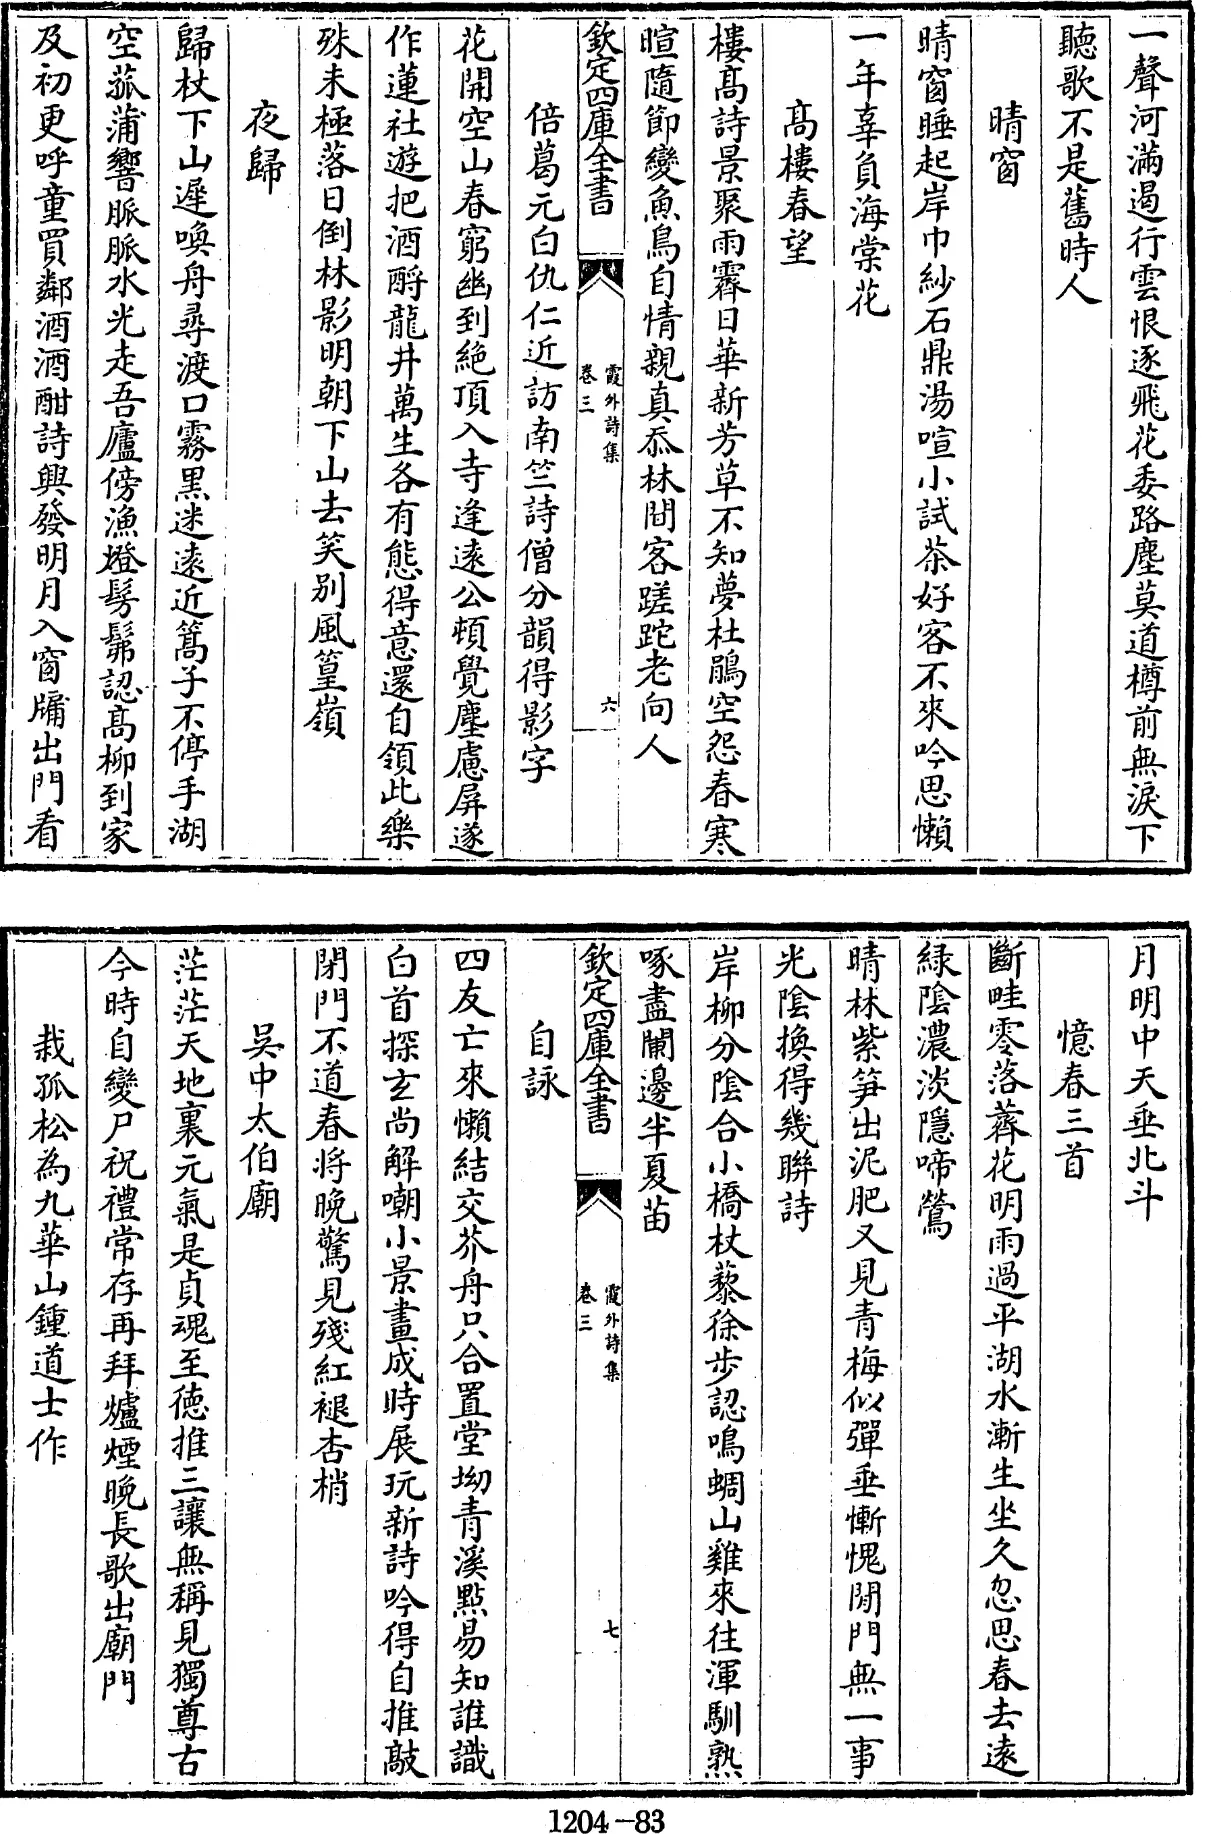 一聲河滿遏行雲恨逐飛花委路塵莫道樽前無淚下
聽歌不是舊時人
晴窗
晴窗睡起岸巾紗石鼎湯喧小試茶好客不來吟思懶
一年辜負海棠花
高樓春望
樓高詩景聚雨霽日華新芳草不知夢杜鵑空怨春寒
暄隨節變魚鳥自情親真忝林間客蹉跎老向人
欽定四庫全書
霞外詩集
卷三
六
倍葛元白仇仁近訪南竺詩僧分韻得影字
花開空山春窮幽到絶頂入寺逢遠公頓覺塵慮屏遂
作蓮社遊把酒酹龍井萬生各有態得意還自領此樂
殊未極落日倒林影明朝下山去笑别風篁嶺
夜歸
歸杖下山遲喚舟尋渡口霧黒迷遠近篙子不停手湖
空菰蒲響脈脈水光走吾廬傍漁燈髣髴認高柳到家
及初更呼童買鄰酒酒酣詩興發明月入窗牖出門看
月明中天垂北斗
憶春三首
斷畦零落薺花明雨過平湖水漸生坐久忽思春去遠
緑陰濃淡隱啼鶯
晴林紫笋出泥肥又見青梅似彈垂慚愧閒門無一事
光陰換得幾聯詩
岸柳分陰合小橋杖藜徐步認鳴蜩山雞來往渾馴熟
啄盡闌邊半夏苗
欽定四庫全書
霞外詩集
卷三
七
自詠
四友亡來懶結交芥舟只合置堂坳青溪點易知誰識
白首探玄尚解嘲小景畫成時展玩新詩吟得自推敲
閉門不道春將晚驚見殘紅褪杏梢
吳中太伯廟
茫茫天地裏元氣是貞魂至德推三讓無稱見獨尊古
今時自變尸祝禮常存再拜爐煙晩長歌出廟門
栽孤松為九華山鍾道士作
1204-83